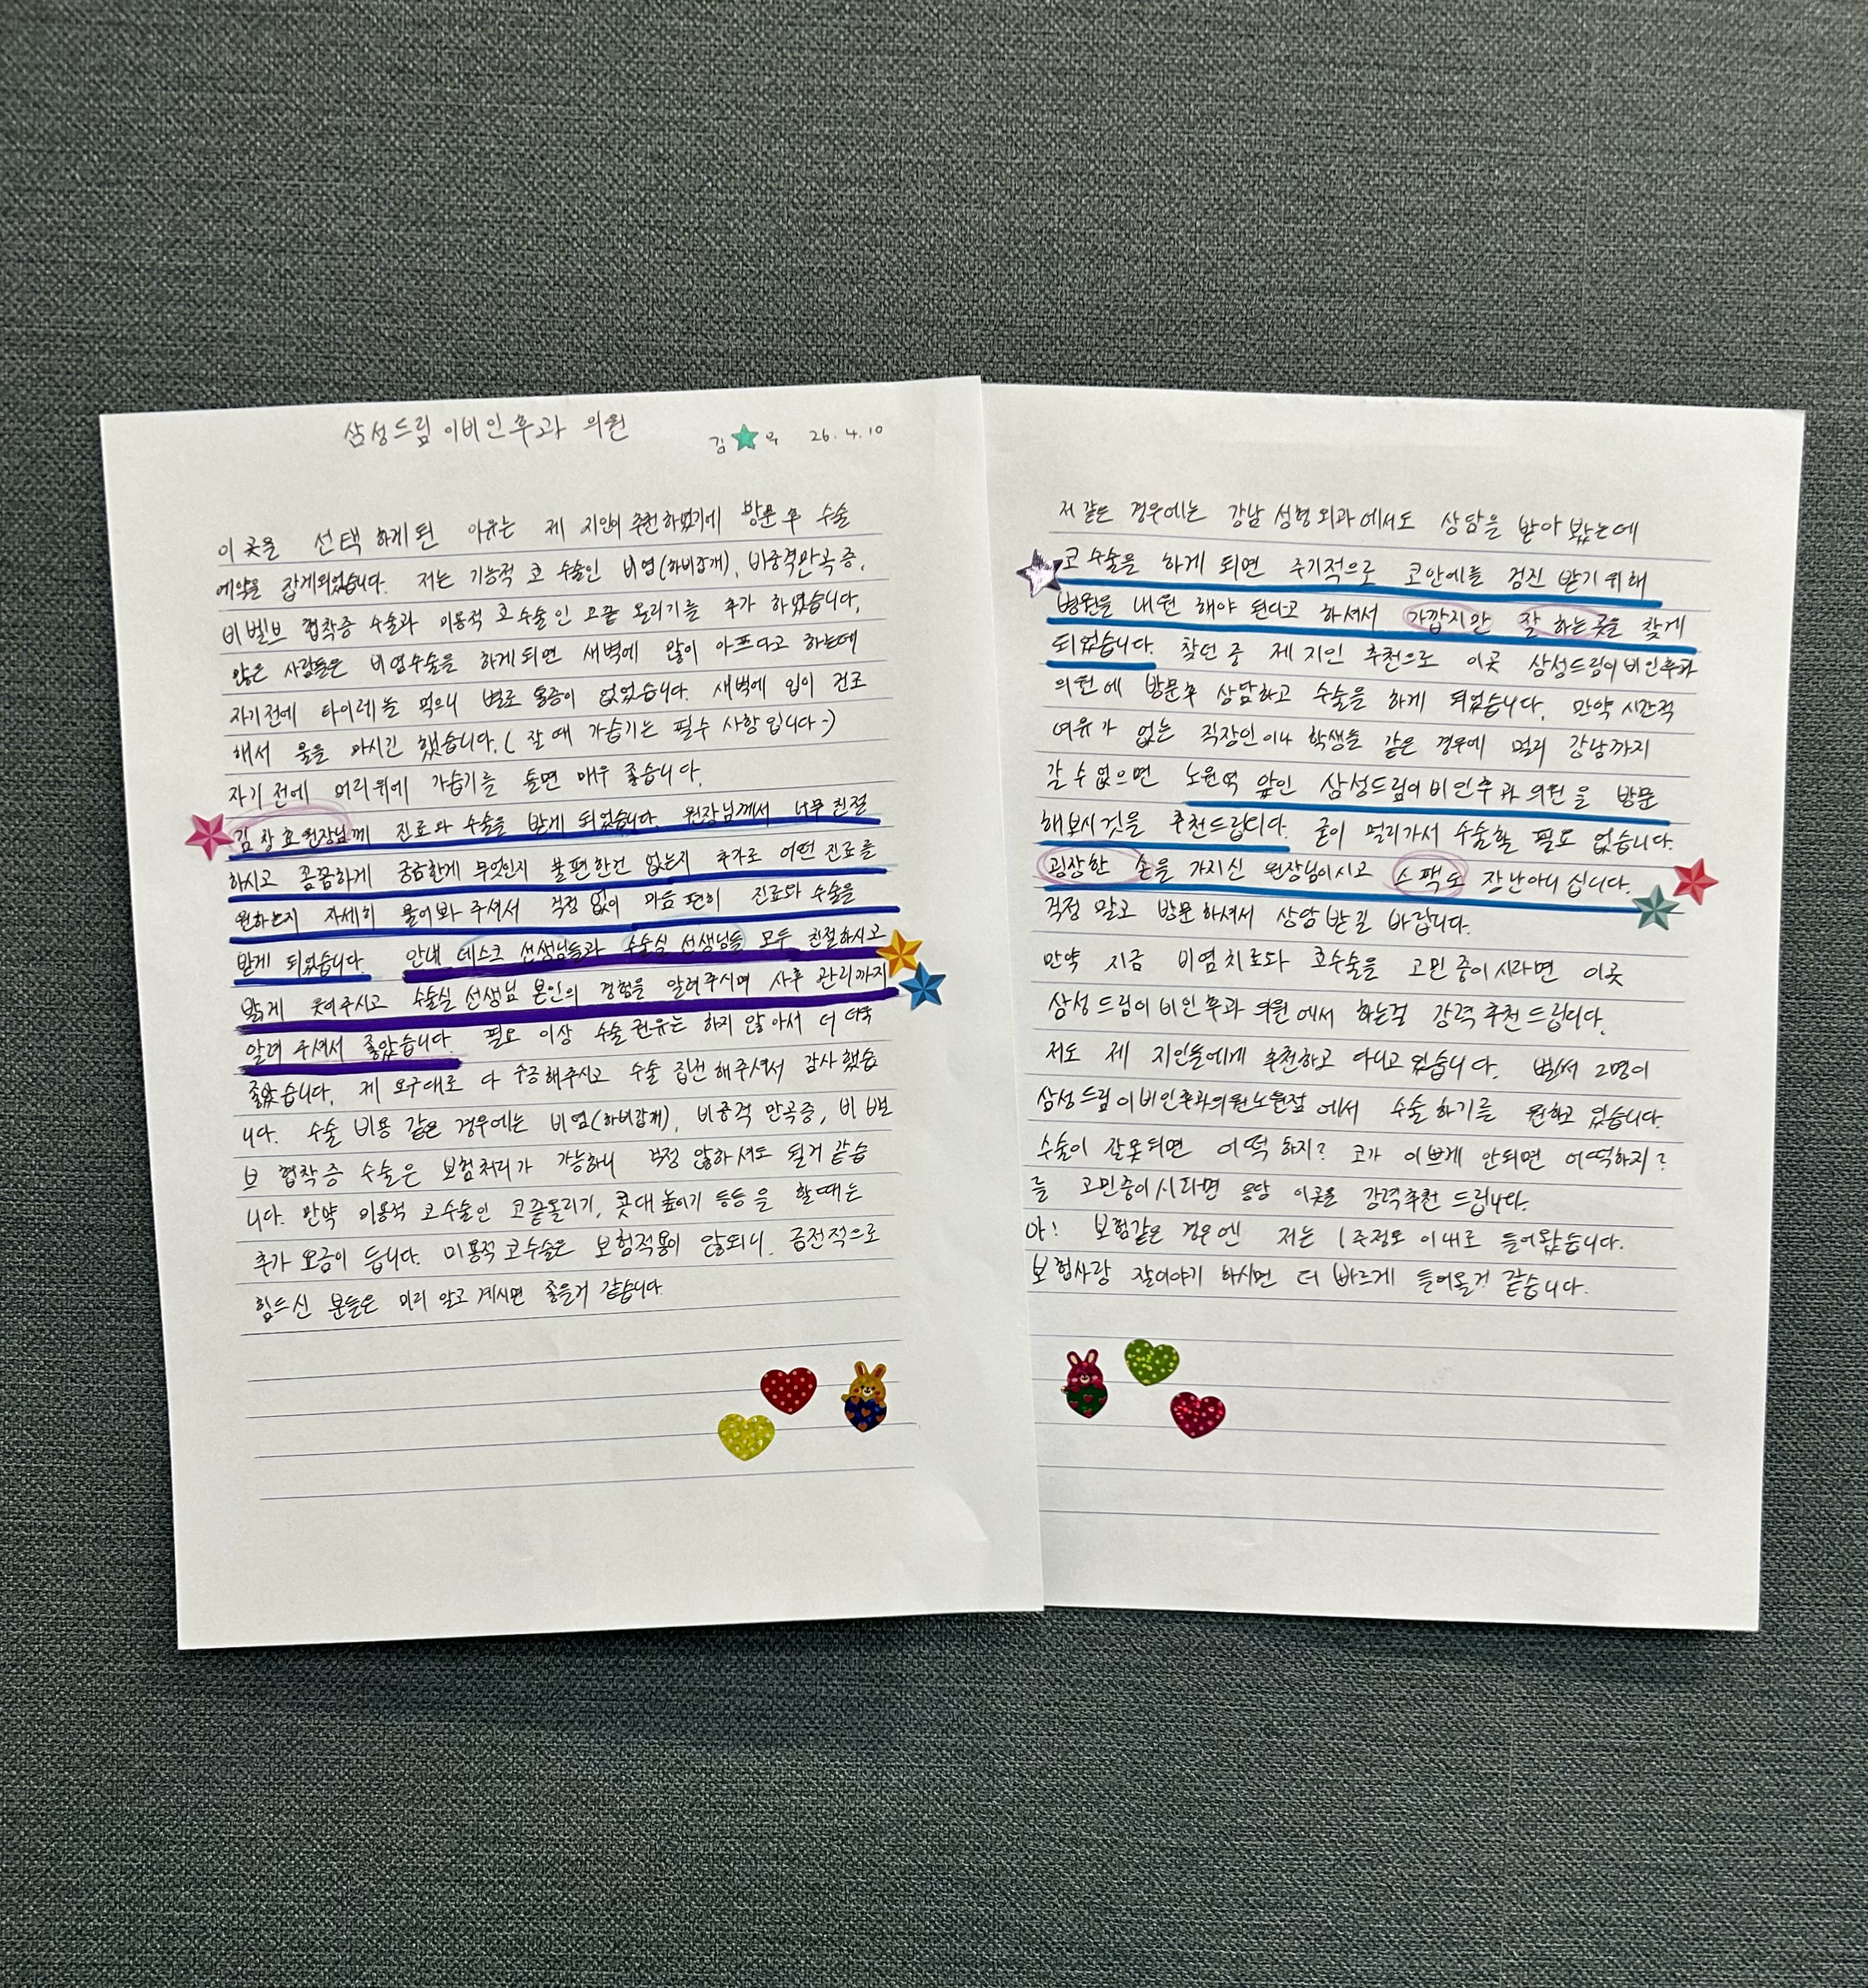 삼성드림 이비인후과 의원
김 욱 26. 4. 10
이 곳을 선택 하게 된 이유는 제 지인이 추천하였기에 방문 후 수술
예약을 잡게되었습니다. 저는 기능적 코 수술인 비염(하비갑개), 비중격만곡증,
비 벨브 협착증 수술과 미용적 코수술인 코끝 올리기를 추가 하였습니다.
많은 사람들은 비염수술을 하게되면 새벽에 많이 아프다고 하는데
자기전에 타이레놀 먹으니 별로 통증이 없었습니다. 새벽에 입이 건조
해서 물을 마시긴 했습니다. ( 잘 때 가습기는 필수 사항 입니다~)
자기 전에 머리위에 가습기를 틀면 매우 좋습니다.
김장효원장님께 진료와 수술을 받게 되었습니다. 원장님께서 너무 친절
하시고 꼼꼼하게 궁금한게 무엇인지 불편한건 없는지 추가로 어떤 진료를
원하는지 자세히 물어봐 주셔서 걱정 없이 마음 편히 진료와 수술을
받게 되었습니다. 안내 데스크 선생님들과 수술실 선생님들 모두 친절하시고
밝게 웃어주시고 수술실 선생님 본인의 경험을 알려주시며 사후 관리까지
알려 주셔서 좋았습니다. 필요 이상 수술 권유는 하지 않아서 더 더욱
좋았습니다. 제 요구대로 다 수긍해주시고 수술 집도해주셔서 감사했습
니다. 수술 비용 같은 경우에는 비염(하비갑개), 비중격 만곡증, 비 밸
브 협착증 수술은 보험처리가 가능하니 걱정 않하셔도 될거 같습
니다. 만약 미용적 코수술인 코끝올리기, 콧대 높이기 등등을 할때는
추가 요금이 듭니다. 미용적 코수술은 보험적용이 않되니. 금전적으로
힘드신 분들은 미리 알고 계시면 좋을거 같습니다.
저 같은 경우에는 강남 성형외과에서도 상담을 받아 봤는데
코 수술을 하게 되면 주기적으로 코안에를 검진 받기 위해
병원을 내원 해야 된다고 하셔서 가깝지만 잘 하는곳을 찾게
되었습니다. 찾던 중 제 지인 추천으로 이곳 삼성드림이비인후과
의원에 방문후 상담하고 수술을 하게 되었습니다. 만약 시간적
여유가 없는 직장인이나 학생들 같은 경우에 멀리 강남까지
갈 수 없으면 노원역 앞인 삼성드림이비인후과의원을 방문
해보시것을 추천드립니다. 굳이 멀리가서 수술할 필요 없습니다.
굉장한 손을 가지신 원장님이시고 스팩도 장난아니십니다.
걱정 말고 방문하셔서 상담 받길 바랍니다.
만약 지금 비염치료다 코수술을 고민 중이시라면 이곳
삼성 드림이비인후과 의원에서 하는걸 강력추천드립니다.
저도 제 지인들에게 추천하고 다니고 있습니다. 벌써 2명이
삼성드림이비인후과의원노원점 에서 수술 하기를 원하고 있습니다.
수술이 잘못되면 어떡하지? 코가 이쁘게 안되면 어떡하지?
를 고민중이시다면 응당 이곳을 강력추천 드립니다.
아! 보험같은 경우엔 저는 1주정도 이내로 들어왔습니다.
보험사랑 잘이야기 하시면 더 빠르게 들어올거 같습니다.